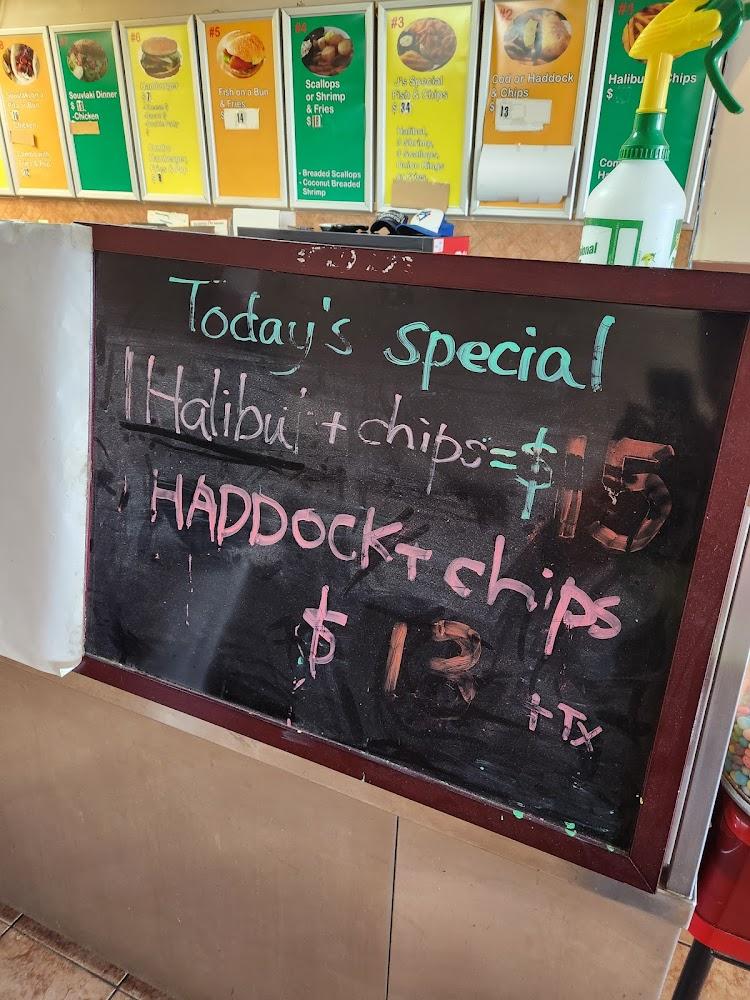 #6
#5
#4
#3
#2
Souvlaki Dinner
-Chicken
Hamburger
Fish on a Bun
& Fries
$ 14
Scallops
or Shrimp
& Fries
$
- Breaded Scallops
- Coconut Breaded
Shrimp
J's Special
Fish & Chips
$ 34
Halibut,
Cod or Haddock
& Chips
13
Halibut Chips
$
Today's special
1 Halibut + chips = $15
HADDOCK + chips
$ 13 + Tx